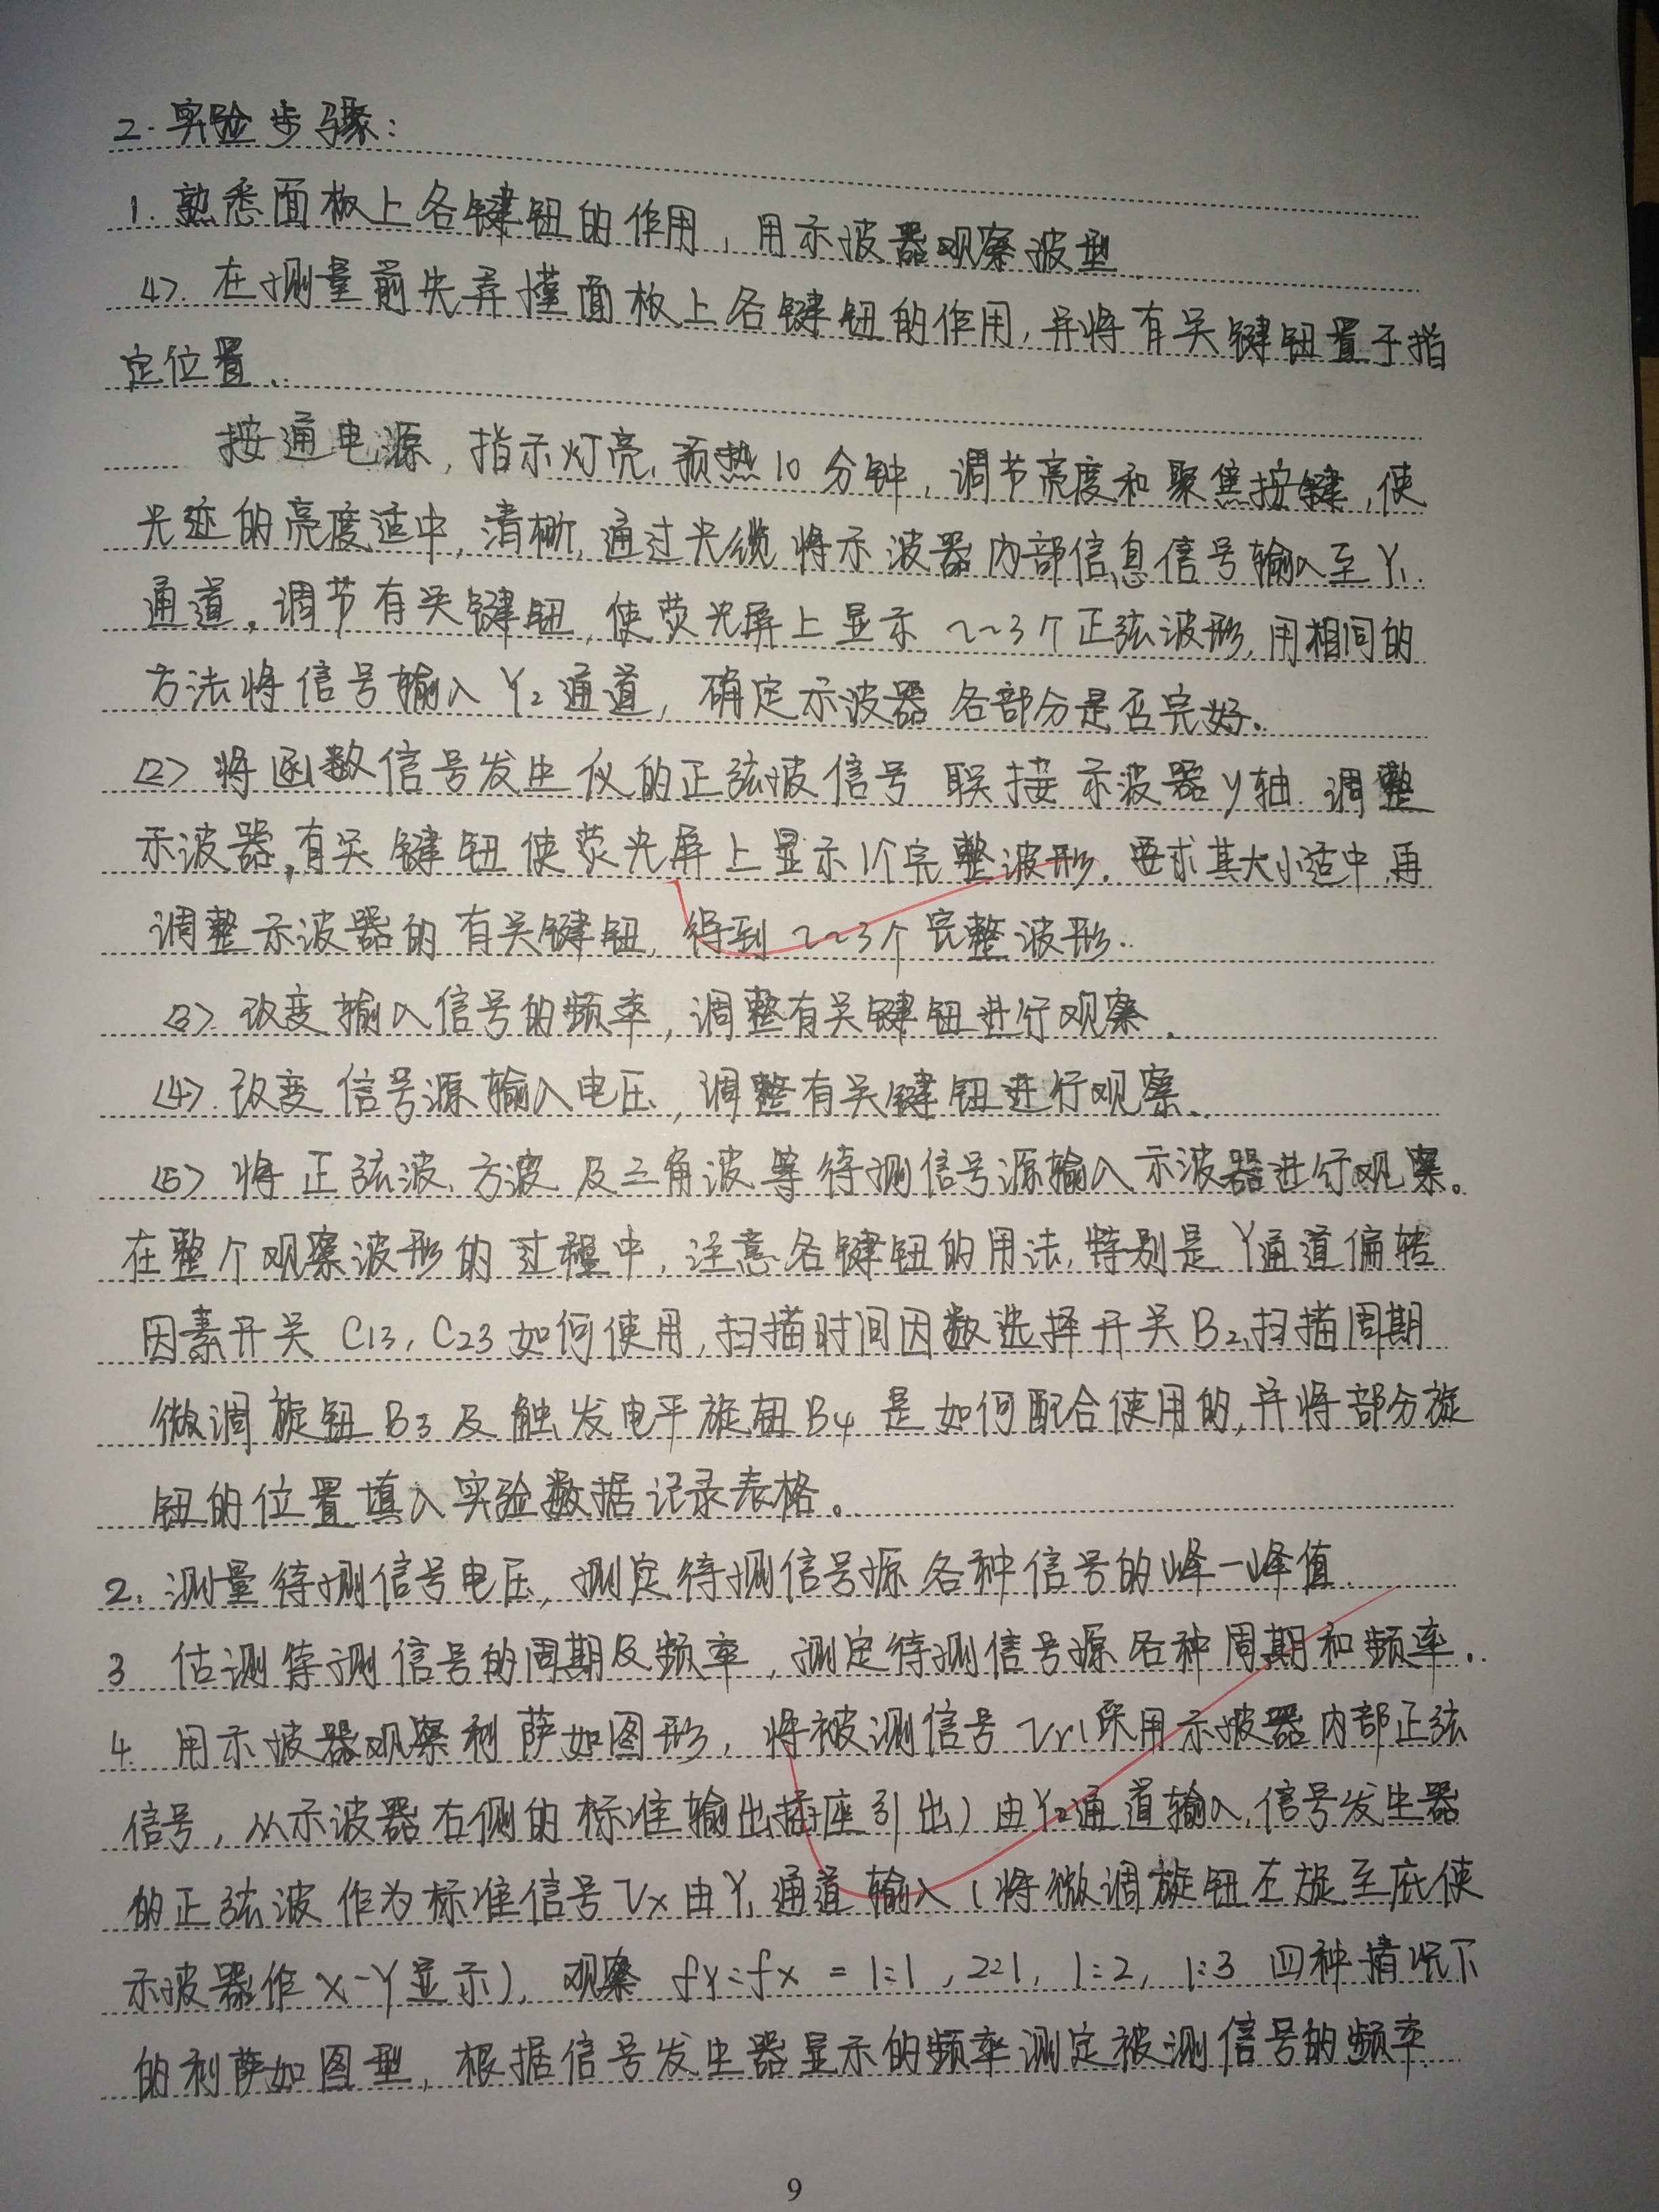 2. 实验步骤:
1. 熟悉面板上各键钮的作用,用示波器观察波型
<1>. 在测量前先弄懂面板上各键钮的作用,并将有关键钮置于指
定位置.
按通电源,指示灯亮,预热10分钟,调节亮度和聚焦按键,使
光迹的亮度适中,清晰,通过光缆将示波器内部信息信号输入至Y₁
通道。调节有关键钮,使荧光屏上显示2~3个正弦波形,用相同的
方法将信号输入Y₂通道,确定示波器各部分是否完好。
<2> 将函数信号发生仪的正弦波信号联接示波器y轴.调整
示波器,有关键钮使荧光屏上显示1个完整波形.要求其大小适中,再
调整示波器的有关键钮,得到2~3个完整波形.
<3>. 改变输入信号的频率,调整有关键钮进行观察.
<4>. 改变信号源输入电压,调整有关键钮进行观察.
<5> 将正弦波、方波及三角波等待测信号源输入示波器进行观察。
在整个观察波形的过程中,注意各键钮的用法,特别是Y通道偏转
因素开关C13,C23如何使用,扫描时间因数选择开关B2,扫描周期
微调旋钮B3及触发电平旋钮B4是如何配合使用的,并将部分旋
钮的位置填入实验数据记录表格。
2. 测量待测信号电压,测定待测信号源各种信号的峰-峰值.
3 估测待测信号的周期及频率,测定待测信号源各种周期和频率.
4. 用示波器观察利萨如图形,将被测信号 采用示波器内部正弦
信号,从示波器右侧的标准输出插座引出)由Y₂通道输入,信号发生器
的正弦波作为标准信号Vx由Y₁通道输入(将微调旋钮左旋至底使
示波器作X-Y显示),观察 fy:fx = 1:1,2:1,1:2,1:3 四种情况下
的利萨如图型,根据信号发生器显示的频率测定被测信号的频率.
9